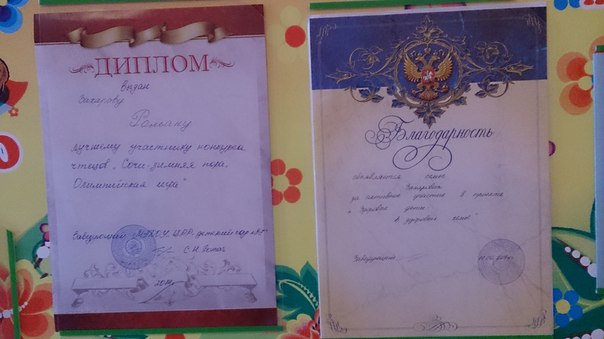 ДИПЛОМ
Выдан
Захарову
Роману
лучшему участнику конкурса
чтецов „Сочи-зимняя пора,
Олимпийская игра"
Заведующий МБДОУ ЦРР детский сад
Благодарность
объявляется семье
Захаровых
за активное участие в проекте
"Здоровые дети
в здоровой семье"
Заведующий